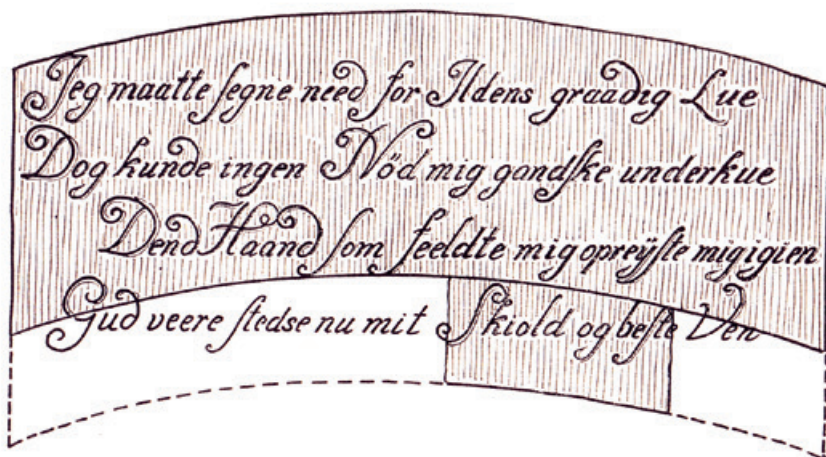 Jeg maatte segne need for Ildens graadig Lue
Dog kunde ingen Nöd mig gandske underkue
Dend Haand som feeldte mig opreÿste mig igien
Gud veere stedse nu mit Skiold og beste Ven